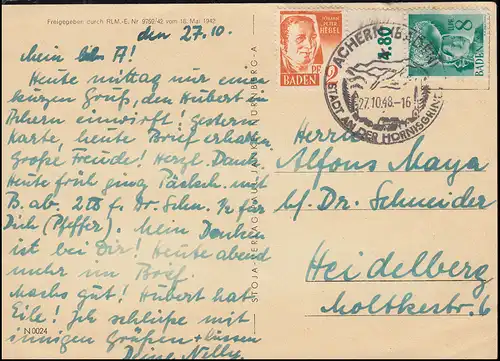 Freigegeben durch RLM.-E. Nr 9752/42 vom 18. Mai 1942
den 27.10.
Mein A!
Heute mittag nur einen
kurzen Gruß, den Hubert in
Achern einwirft! gestern
Karte, heute Brief erhalten.
Große Freude! Herzl. Dank.
Heute früh ging Päckch. mit
B. ab. f. Dr. Schn. 1/2 für
Dich (Pfeffer). Mein Danken
ist bei Dir! Heute abend
mehr im Brief.
Machs gut! Hubert hat
Eile! Ich schließe mit
innigen Grüßen + Küssen
Deine Nelly.
N 0024
STOJA-VERLAG PAUL JANKE NÜRNBERG-A
JOHANN PETER HEBEL
2 PF
BADEN
4.80
8
BADEN
ACHERN
27.10.48.-16
STADT AN DER HORNISGRINDE
Herrn
Alfons Maya
b/ Dr. Schneider
Heidelberg
Moltkestr. 6